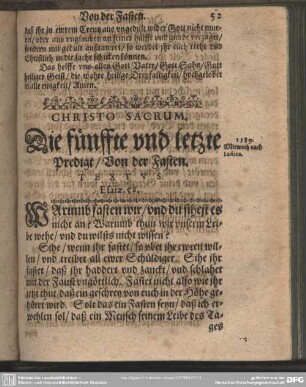 Von der Fasten. 52
daß ihr in ewrem Creuz aus ungedult wider Gott nicht mur-
ret / oder aus unglauben an seiner hülffe und gnade verzaget /
sondern mit gedult außwartet / so werdet ihr euch recht und
Christlich in die sache schicken können.
Das helffe uns allen Gott Vater / Gott Sohn / Gott
heiliger Geist / die wahre heilige Dreyfaltigkeit / hochgelobet
in alle ewigkeit / Amen.
CHRISTO SACRUM.
Die fünffte vnd letzte
Predigt / Von der Fasten.
1589.
Mittwoch nach
Esaiæ. 58.
WArumb fasten wir / und du sihest es
nicht an? Warumb thun wir unserm Lei-
be wehe / und du wilst nicht wissen?
Sihe / wenn ihr fastet / so ubet ihr ewren wil-
len / und treibet all ewer Schüldiger. Sihe ihr
fastet / daß ihr haddert und zancket / und schlahet
mit der Faust ungöttlich. Fastet nicht also wie ihr
jetzt thut / daß ein geschrey von euch in der Höhe ge-
höret wird. Solt das ein Fasten seyn / daß ich er-
wehlen sol / daß ein Mensch seinem Leibe des Ta-
ges